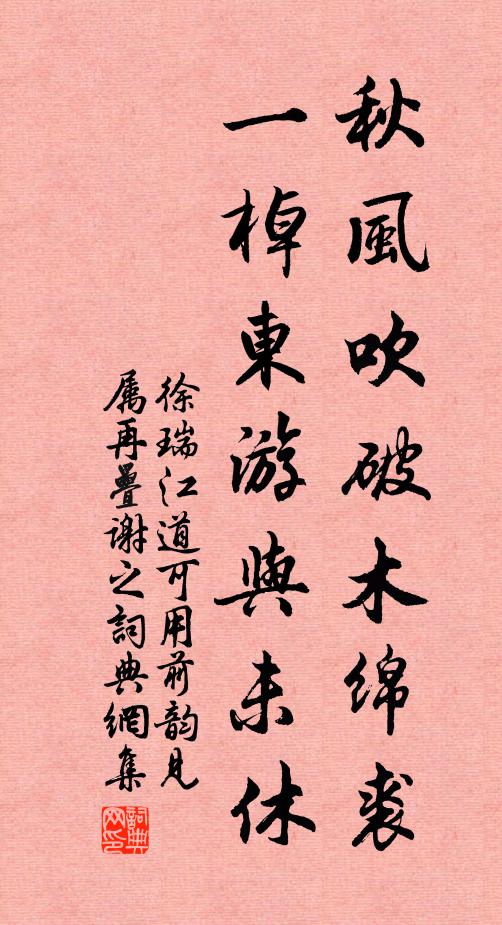 秋風吹破木綿裘
一棹東游興未休
徐瑞江道可用前韵見
属再疊謝之詞典網集
詞典网印